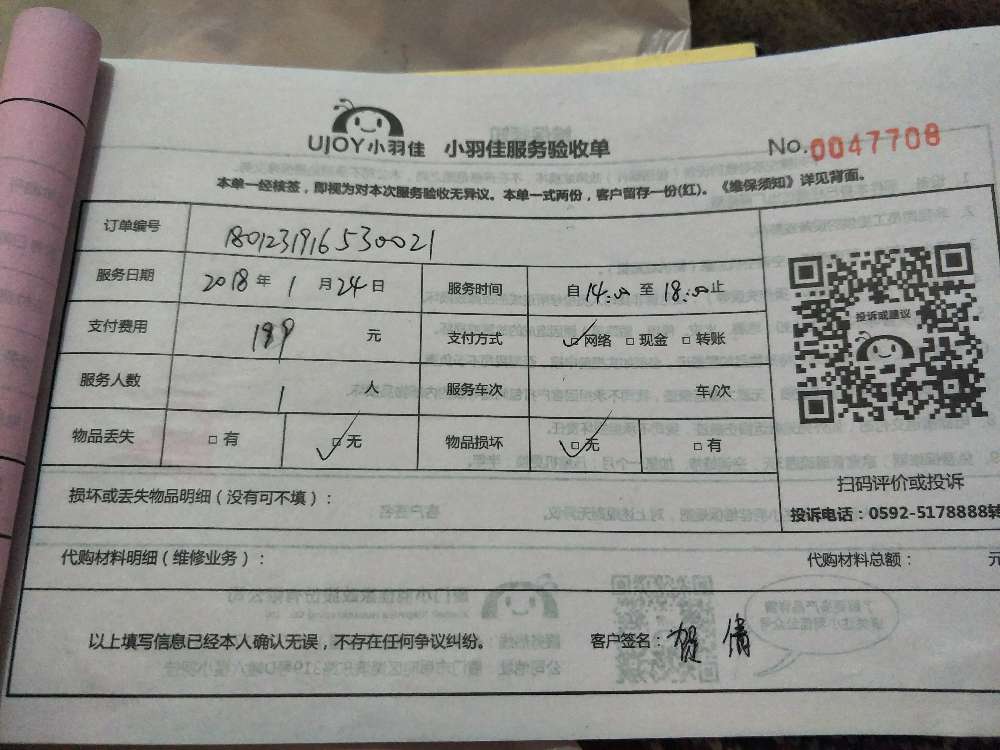 UJOY小羽佳 小羽佳服务验收单 No.0047708
本单一经核签，即视为对本次服务验收无异议。本单一式两份，客户留存一份(红)。《维保须知》详见背面。
订单编号 1801231916530021
服务日期 2018年1月24日 服务时间 自14:00至18:00止
支付费用 199元 支付方式 ☑网络 □现金 □转账
服务人数 1人 服务车次 车/次
物品丢失 □有 ☑无 物品损坏 ☑无 □有
投诉或建议
扫码评价或投诉
损坏或丢失物品明细（没有可不填）：
投诉电话：0592-5178888转
代购材料明细（维修业务）： 代购材料总额： 元
以上填写信息已经本人确认无误，不存在任何争议纠纷。 客户签名：贺倩